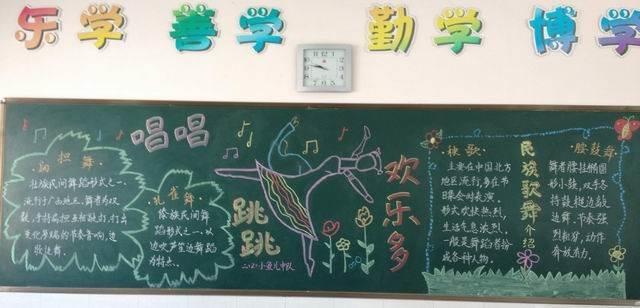 乐学 善学 勤学 博学
唱唱
跳跳
欢乐多
扁担舞
壮族民间舞蹈形式之一、
流行于广西地区，舞者为双
数，手持扁担互相敲打，打出
变化多端的节奏音响，边
歌边舞。
孔雀舞
傣族民间舞
蹈形式之一。以
边吹芦笙边舞蹈
为特点。
二·2小鱼儿中队
秧歌
主要在中国北方
地区流行，多在节
日集会时表演，
形式欢快热烈，
生活气息浓烈，
一般是舞蹈者扮
成各种人物。
民族歌舞介绍
腰鼓舞
舞者腰挂椭圆
形小鼓，双手各
持鼓槌边敲
边舞。节奏强
烈粗犷，动作
奔放有力。